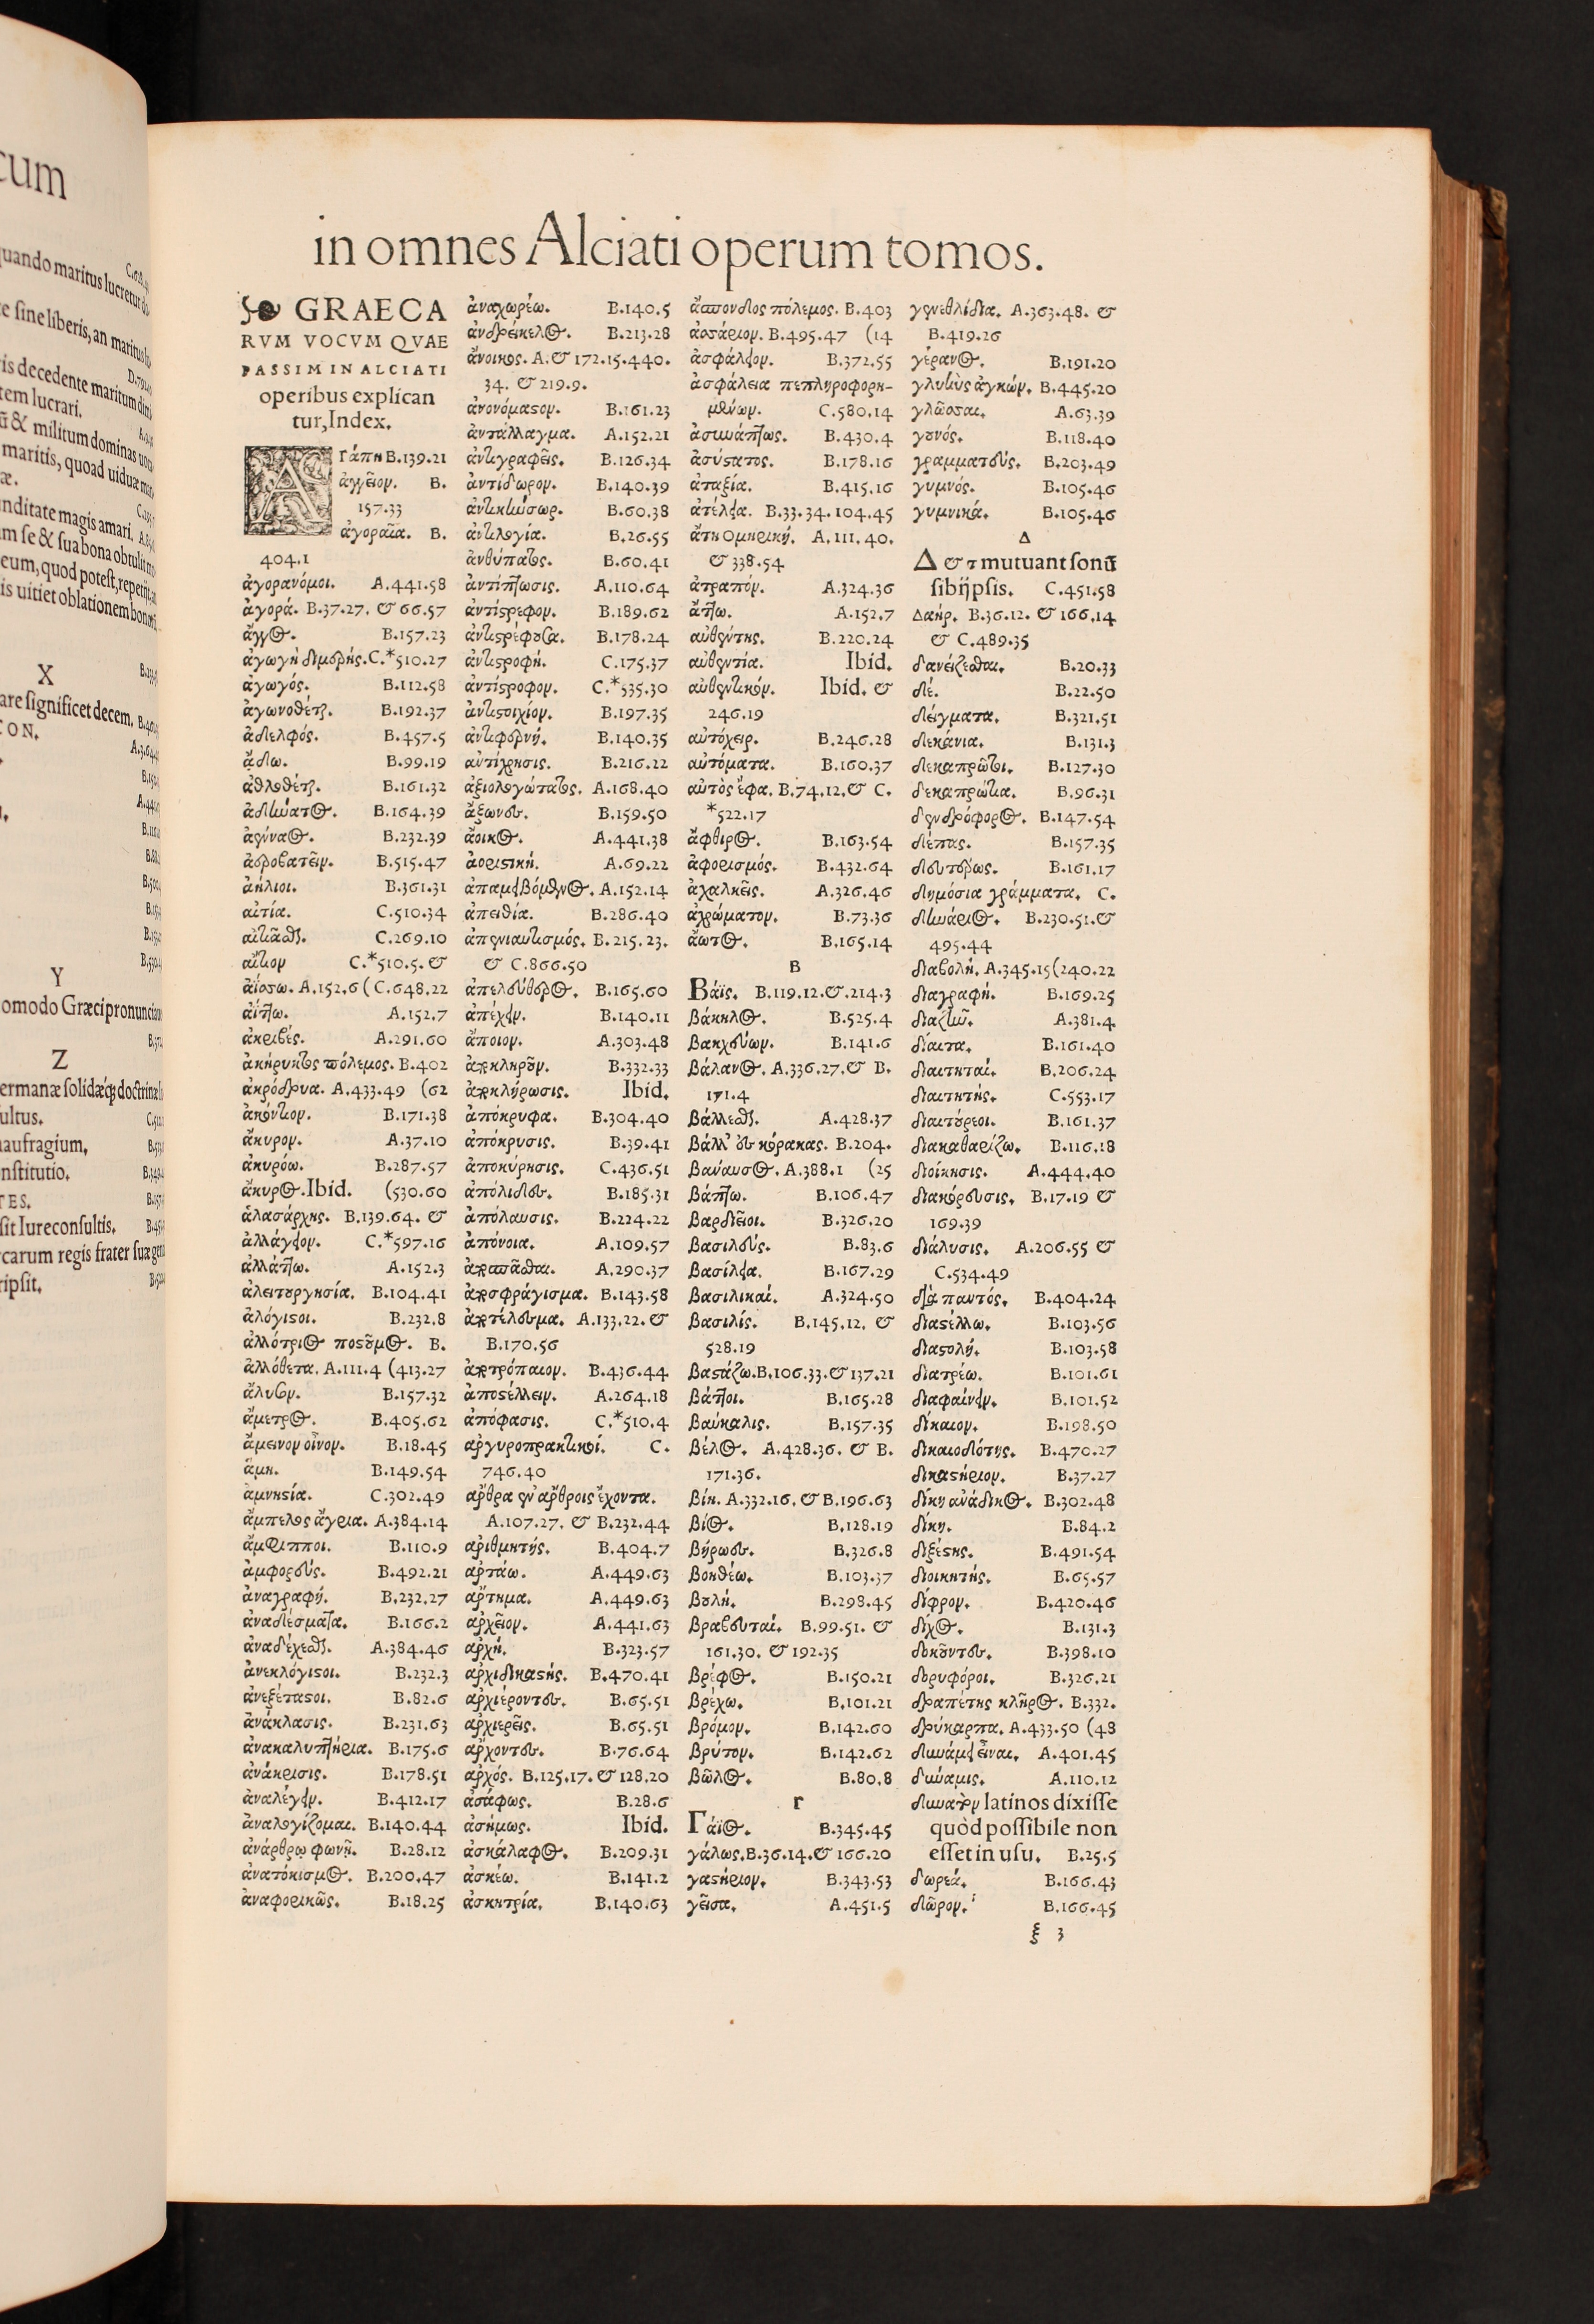 in omnes Alciati operum tomos.
GRAECA
RVM VOCVM QVAE
PASSIM IN ALCIATI
operibus explican
tur, Index.
ΑΓάπη B.139.21
ἀγγεῖον. B.
157.33
ἀγοραῖα. B.
404.1
ἀγορανόμοι. A.441.58
ἀγορά. B.37.27. & 66.57
ἄγγος. B.157.23
ἀγωγὴ C.*510.27
ἀγωγός. B.112.58
ἀγωνοθέτης. B.192.37
ἀδελφός. B.457.5
ᾄδω. B.99.19
ἀθλοθέτης. B.161.32
ἀδύνατος. B.164.39
B.232.39
ἀεροβατεῖν. B.515.47
ἀήλιοι. B.361.31
αἰτία. C.510.34
αἰτιᾶσθαι. C.269.10
αἴτιον C.*510.5. &
ἀΐσσω. A.152.6 (C.648.22
A.152.7
ἀκριβές. A.291.60
ἀκήρυκτος πόλεμος. B.402
ἀκρόδρυα. A.433.49 (62
ἀκόντιον. B.171.38
ἄκυρον. A.37.10
ἀκυρόω. B.287.57
ἄκυρος. Ibid. (530.60
B.139.64. &
ἀλλάγειον. C.*597.16
ἀλλάττω. A.152.3
ἀλειτουργησία. B.104.41
ἀλόγιστοι. B.232.8
ἀλλότριος B.
ἀλλόθετα. A.111.4 (413.27
B.157.32
ἄμετρος. B.405.62
ἄμεινον οἶνον. B.18.45
ἄμη. B.149.54
ἀμνηστία. C.302.49
ἄμπελος ἄγρια. A.384.14
ἄμφιπποι. B.110.9
ἀμφορεύς. B.492.21
ἀναγραφή. B.232.27
ἀναδέσματα. B.166.2
ἀναδέχεσθαι. A.384.46
ἀνεκλόγιστοι. B.232.3
ἀνεξέταστοι. B.82.6
ἀνάκλασις. B.231.63
ἀνακαλυπτήρια. B.175.6
ἀνάκρισις. B.178.51
ἀναλέγειν. B.412.17
ἀναλογίζομαι. B.140.44
ἀνάρθρῳ φωνῇ. B.28.12
ἀνατόκισμος. B.200.47
ἀναφορικῶς. B.18.25
ἀναχωρέω. B.140.5
ἀνδρείκελος. B.213.28
ἄνοικος. A. & 172.15.440.
34. & 219.9.
ἀνονόμαστον. B.161.23
ἀντάλλαγμα. A.152.21
ἀντιγραφεῖς. B.126.34
ἀντίδωρον. B.140.39
ἀντικνήσωρ. B.60.38
ἀντιλογία. B.26.55
ἀνθύπατος. B.60.41
ἀντίπτωσις. A.110.64
ἀντίστρεφον. B.189.62
ἀντιστρέφουσα. B.178.24
ἀντιστροφή. C.175.37
ἀντίστροφον. C.*535.30
ἀντιστοιχίον. B.197.35
ἀντιφερνή. B.140.35
ἀντίχρησις. B.216.22
ἀξιολογώτατος. A.168.40
ἄξωνες. B.159.50
ἄοικος. A.441.38
ἀοριστική. A.69.22
ἀπαμειβόμενος. A.152.14
ἀπειθία. B.286.40
ἀπενιαυτισμός. B.215.23.
& C.866.50
ἀπελεύθερος. B.165.60
ἀπέχειν. B.140.11
ἄποιον. A.303.48
ἀποκληροῦν. B.332.33
ἀποκλήρωσις. Ibid.
ἀπόκρυφα. B.304.40
ἀπόκρυσις. B.39.41
ἀποκύρησις. C.436.51
ἀπόλιδες. B.185.31
ἀπόλαυσις. B.224.22
ἀπόνοια. A.109.57
ἀποσπᾶσθαι. A.290.37
ἀποσφράγισμα. B.143.58
ἀποτέλεσμα. A.133.22. &
B.170.56
ἀποτρόπαιον. B.436.44
ἀποστέλλειν. A.264.18
ἀπόφασις. C.*510.4
ἀργυροπρακτικοί. C.
746.40
ἄρθρα ἐν ἄρθροις ἔχοντα.
A.107.27. & B.232.44
ἀριθμητής. B.404.7
ἀρτάω. A.449.63
ἄρτημα. A.449.63
ἀρχεῖον. A.441.63
ἀρχή. B.323.57
ἀρχιδικαστής. B.470.41
ἀρχιέροντες. B.65.51
ἀρχιερεῖς. B.65.51
ἄρχοντες. B.76.64
ἀρχός. B.125.17. & 128.20
ἀσάφως. B.28.6
ἀσήμως. Ibid.
ἀσκάλαφος. B.209.31
ἀσκέω. B.141.2
ἀσκητρία. B.140.63
ἄσπονδος πόλεμος. B.403
ἀσσάριον. B.495.47 (14
ἀσφάλειον. B.372.55
ἀσφάλεια πεπληροφορη-
μένων. C.580.14
ἀσυνάπτως. B.430.4
ἀσύστατος. B.178.16
ἀταξία. B.415.16
ἀτέλεια. B.33.34.104.45
ἄτη Ομηρική. A.111.40.
& 338.54
ἀτραπόν. A.324.36
ἄττω. A.152.7
αὐθέντης. B.220.24
αὐθεντία. Ibid.
αὐθεντικόν. Ibid. &
246.19
αὐτόχειρ. B.246.28
αὐτόματα. B.160.37
αὐτὸς ἔφα. B.74.12. & C.
*522.17
ἄφθιρος. B.163.54
ἀφορισμός. B.432.64
ἀχαλκεῖς. A.326.46
ἀχρώματον. B.73.36
ἄωτος. B.165.14
B
Βάϊς. B.119.12. & .214.3
βάκηλος. B.525.4
βακχεύων. B.141.6
βάλανος. A.336.27. & B.
171.4
βάλλεσθαι. A.428.37
βάλλ' ἐς κόρακας. B.204.
βαναυσος. A.388.1 (25
βάπτω. B.106.47
βαρδεῖοι. B.326.20
βασιλεύς. B.83.6
βασίλεια. B.167.29
βασιλικαί. A.324.50
βασιλίς. B.145.12. &
528.19
βαστάζω. B.106.33. & 137.21
βάττοι. B.165.28
βαύκαλις. B.157.35
βέλος. A.428.36. & B.
171.36.
βίη. A.332.16. & B.196.63
βίος. B.128.19
βήρωες. B.326.8
βοηθέω. B.103.37
βουλή. B.298.45
βραβευταί. B.99.51. &
161.30. & 192.35
βρέφος. B.150.21
βρέχω. B.101.21
βρόμον. B.142.60
βρύτον. B.142.62
βῶλος. B.80.8
Γ
Γάϊος. B.345.45
γάλως. B.36.14. & 166.20
γαστήριον. B.343.53
γεῖσα. A.451.5
γενεθλίδια. A.363.48. &
B.419.26
γέρανος. B.191.20
γλυκὺς ἀγκών. B.445.20
γλῶσσαι. A.63.39
γονός. B.118.40
γραμματεύς. B.203.49
γυμνός. B.105.46
γυμνικά. B.105.46
Δ
Δ & τ mutuant sonū
sibijpsis. C.451.58
Δαήρ. B.36.12. & 166.14
& C.489.35
δανείζεσθαι. B.20.33
δέ. B.22.50
δείγματα. B.321.51
δεκάνια. B.131.3
δεκαπρῶτοι. B.127.30
δεκαπρώτια. B.96.31
δενδρόφορος. B.147.54
δέπας. B.157.35
δευτέρως. B.161.17
δημόσια γράμματα. C.
δηνάριος. B.230.51. &
495.44
διαβολή. A.345.15 (240.22
διαγραφή. B.169.25
διαζῆν. A.381.4
δίαιτα. B.161.40
διαιτηταί. B.206.24
διαιτητής. C.553.17
διαιτόρεοι. B.161.37
διακαθαρίζω. B.116.18
διοίκησις. A.444.40
διακόρευσις. B.17.19 &
169.39
διάλυσις. A.206.55 &
C.534.49
διὰ παντός. B.404.24
διαστέλλω. B.103.56
διαστολή. B.103.58
διατρέω. B.101.61
διαφαίνειν. B.101.52
δίκαιον. B.198.50
δικαιοδότης. B.470.27
δικαστήριον. B.37.27
δίκη ἀνάδικος. B.302.48
δίκη. B.84.2
διξέστης. B.491.54
διοικητής. B.65.57
δίφρον. B.420.46
δίχος. B.131.3
δοκοῦντες. B.398.10
δορυφόροι. B.326.21
δραπέτης κλῆρος. B.332.
δρύκαρπα. A.433.50 (48
δυνάμει εἶναι. A.401.45
δύναμις. A.110.12
δυνατὸν latinos dixisse
quòd possibile non
esset in usu. B.25.5
δωρεά. B.166.43
δῶρον. B.166.45
ξ 3
cum
quando maritus lucretur
sine liberis, an maritus
is decedente maritum
tem lucrari.
& militum dominas
maritis, quoad uiduæ
nditate magis amari.
m se & sua bona obtulit
eum, quod potest, repetijt
is uitiet oblationem
X
are significet decem.
CON.
Y
omodo Græci pronuncia
Z
ermanæ solidæq; doctrinæ
ultus.
aufragium.
nstitutio.
TES.
sit Iureconsultis.
carum regis frater suæ
ripsit.